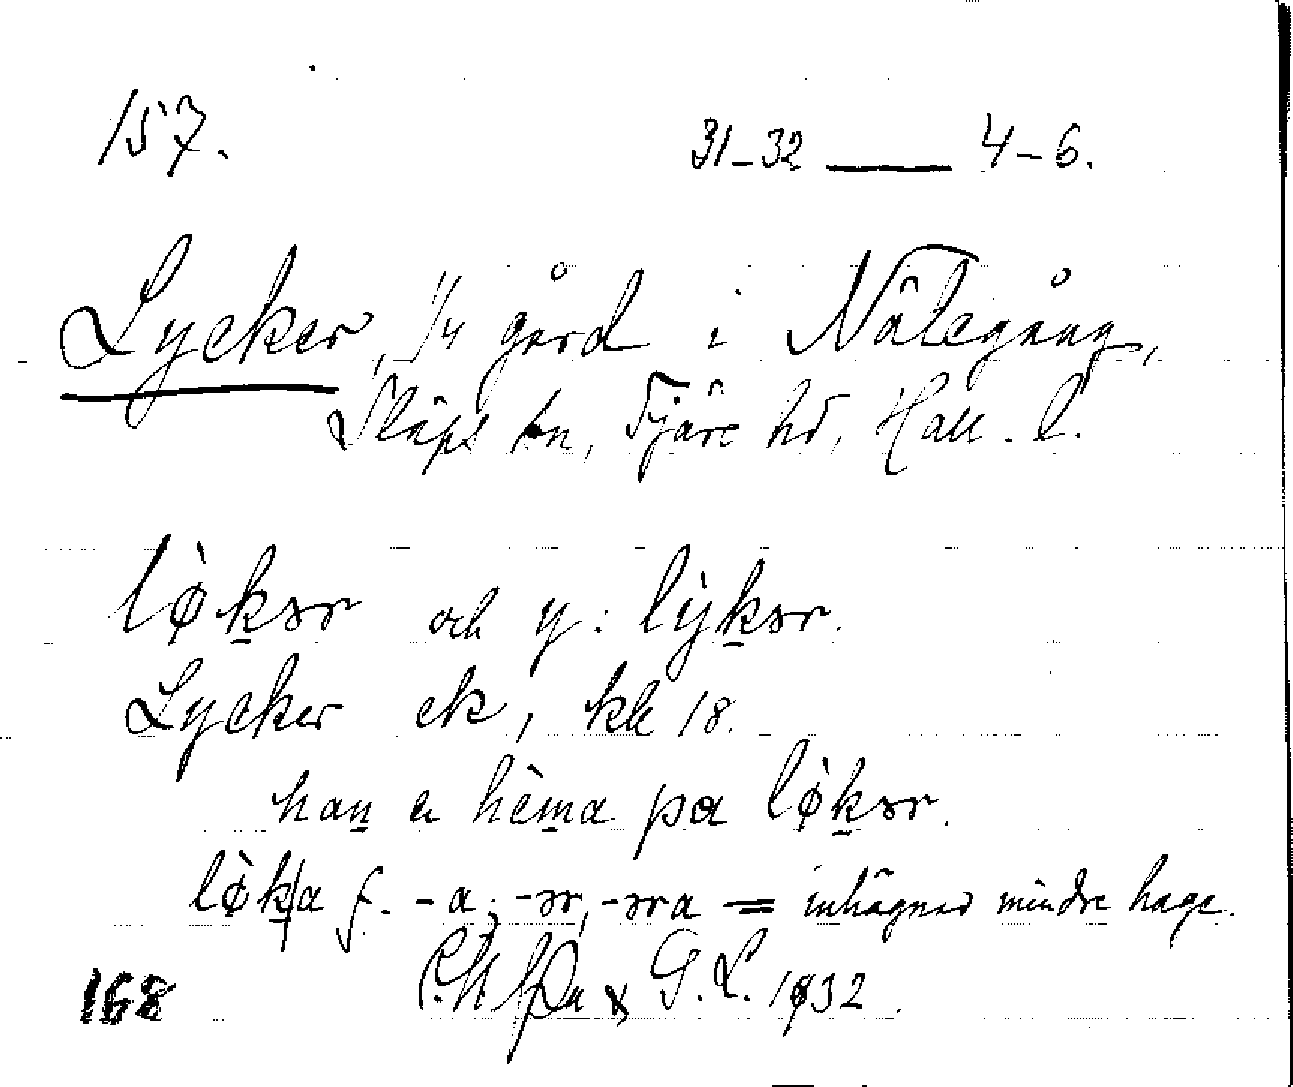 157.
31-32 — 4-6.
Lycker, 1/4 gård i Nålegång,
Släps sn, Fjäre hd, Hall. l.
lø̀kər och y: lỳkər.
Lycker ek, kk 18.
han e hèma pa lø̀kər.
lø̀k/a f. -a; -ər, -əra = inhägnad mindre hage.
G. L. 1932.
168